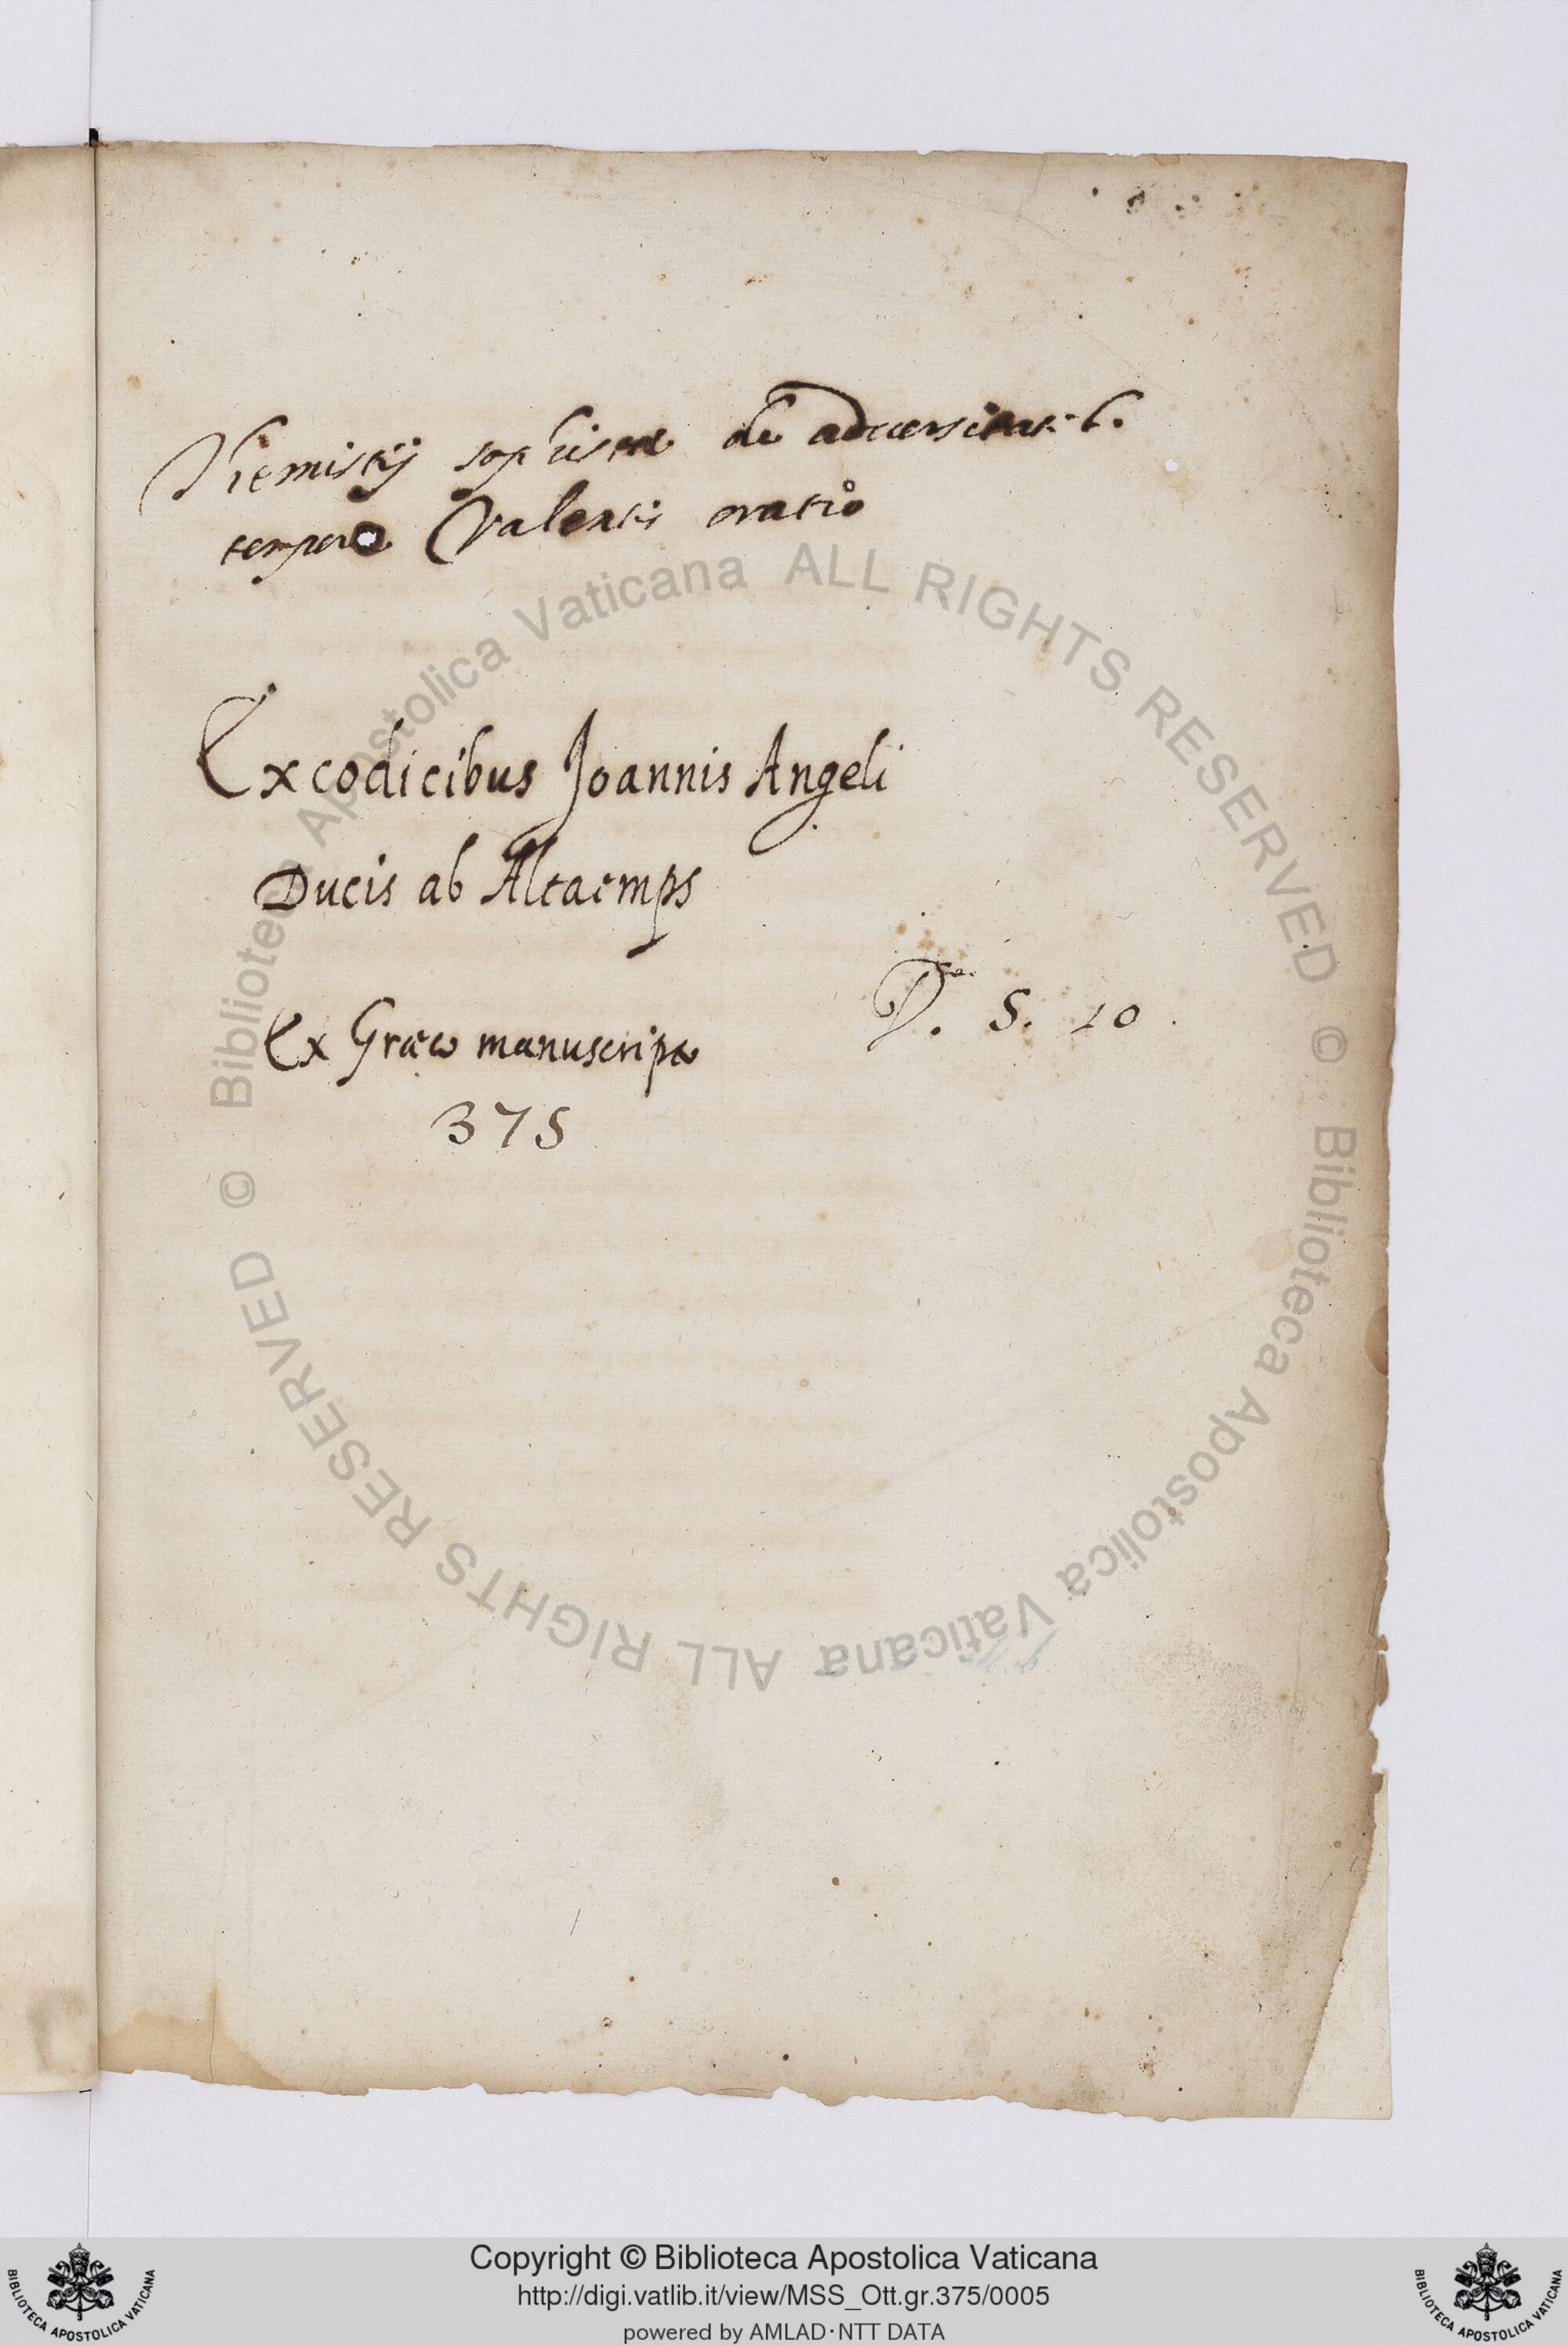 Themistij sophistae de aduersitat-b.
tempore Valentis oratio
Ex codicibus Joannis Angeli
Ducis ab Altaemps
D. S. 10.
Ex Graeco manuscripto
375
© Biblioteca Apostolica Vaticana ALL RIGHTS RESERVED
© Biblioteca Apostolica Vaticana ALL RIGHTS RESERVED
Copyright © Biblioteca Apostolica Vaticana
http://digi.vatlib.it/view/MSS_Ott.gr.375/0005
powered by AMLAD·NTT DATA
BIBLIOTECA APOSTOLICA VATICANA
BIBLIOTECA APOSTOLICA VATICANA